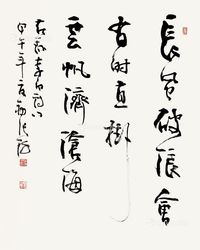 長風破浪會
有時直掛
雲帆濟滄海
李白詩
甲午年夏